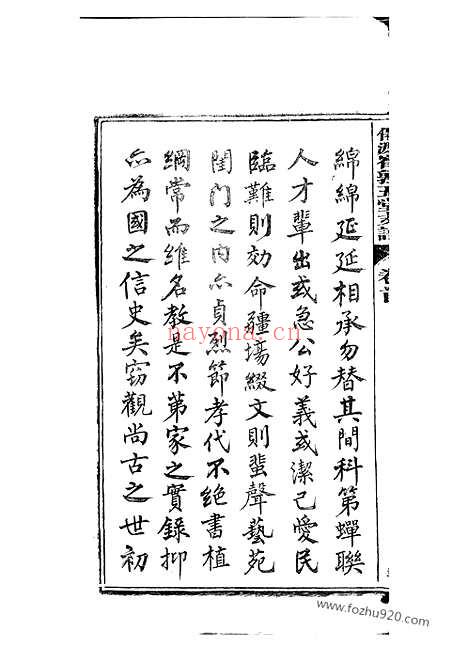 綿綿延延相承勿替其間科第蟬聯
人才輩出或急公好義或潔己愛民
臨難則効命疆場綴文則蜚聲藝苑
閨門之內亦貞烈節孝代不絕書植
綱常而維名教是不第家之實錄抑
亦為國之信史矣窃觀尚古之世初
卷首
nayona.cn
www.fozhu920.com